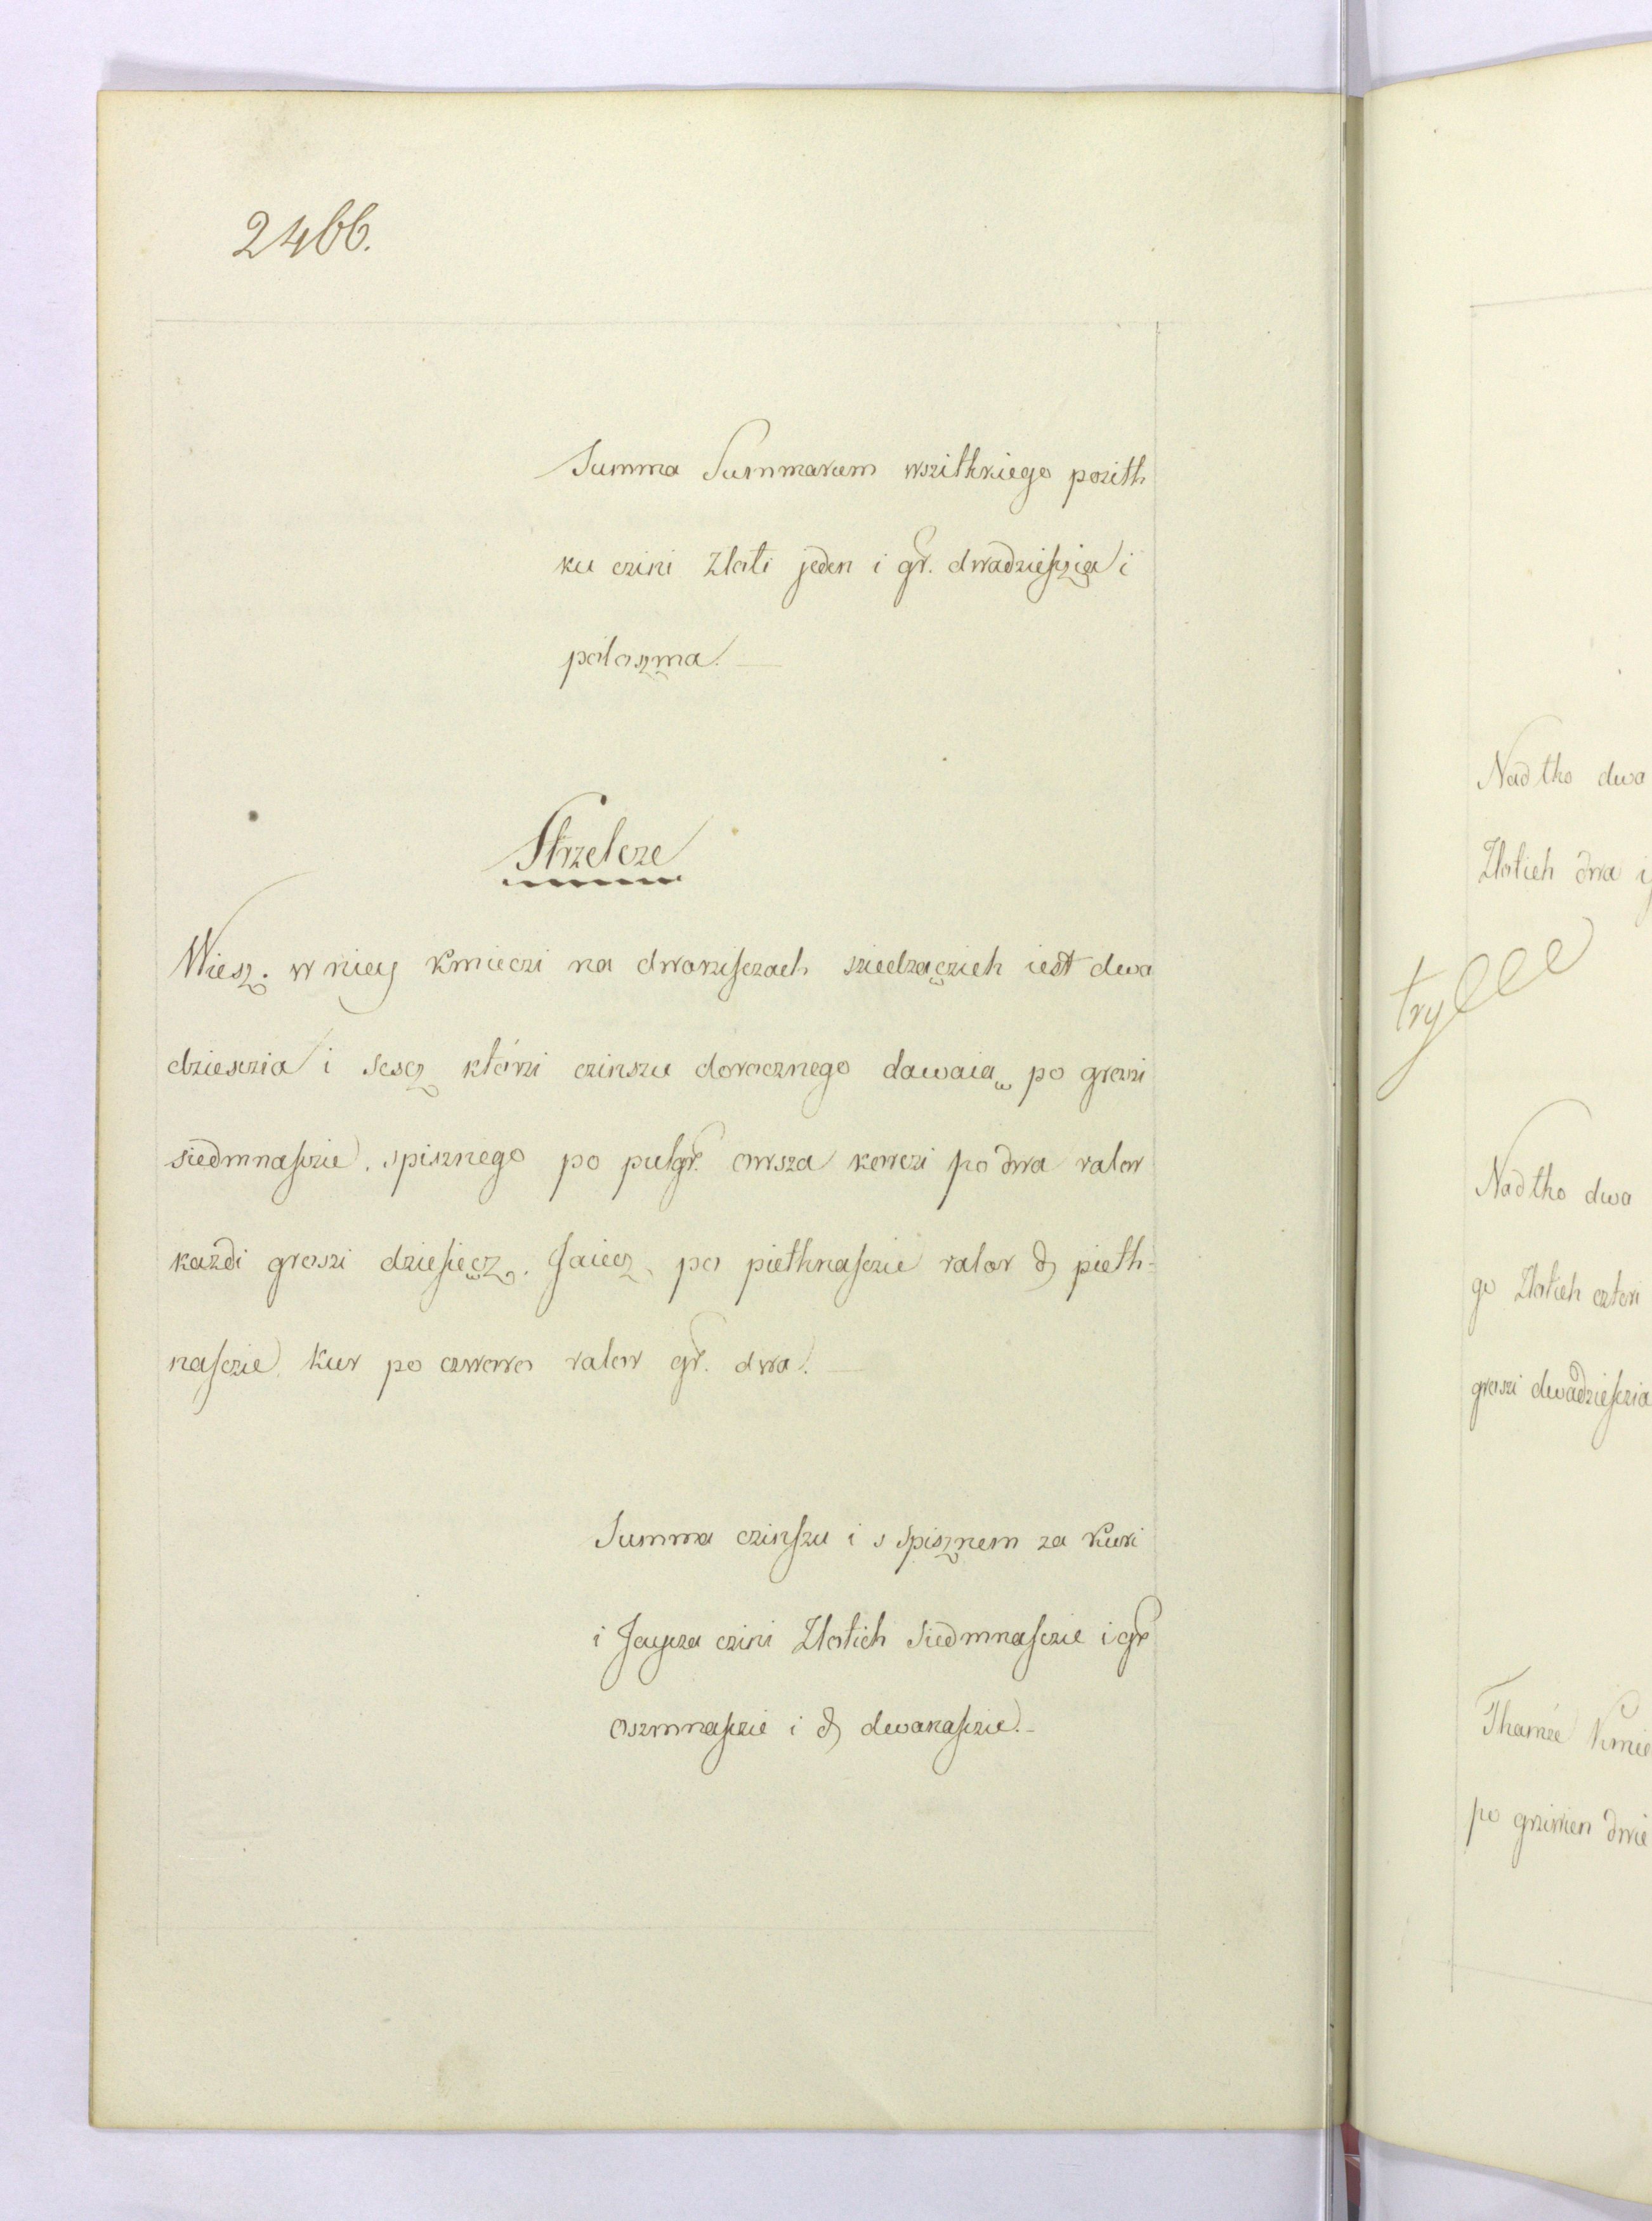 2466.
Summa Summarum wszithkiego pozith
ku czini Zloti jeden i gr. dwadzieszcia i
poloszma.
Strzelcze
Wiesz. w niey kmieczi na dworziszczach sziedzaczich iest dwa
dzieszcia i sescz którzi czinszu dorocznego dawaia po groszi
siedmnascie. spisznego po pulgr. owsza korczi po dwa valor
każdi groszi dziesięcz. Jaiecz po piethnascie valor ₰ pieth-
nascie kur po czworo valor gr. dwa.
Summa czinszu i s spisznem za kuri
i Jaycza czini Zlotich Siedmnascie i gr
oszmnascie i ₰ dwanascie.
Nad tho dwa
Zlotich dwa i
try
Nad tho dwa
go Zlotich czteri
groszi dwadziescia
Thamże Kmie
po grziwien dwie